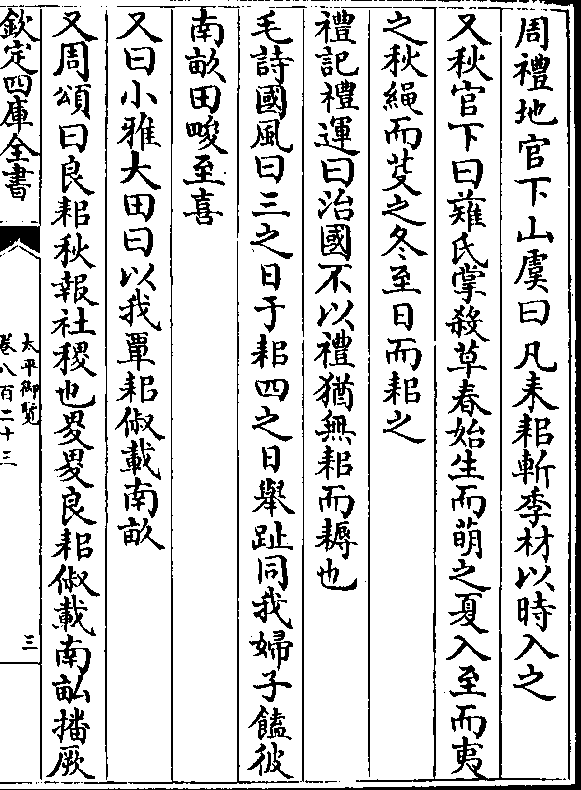 周禮地官下山虞曰凡耒耜斬季材以時入之
又秋官下曰薙氏掌殺草春始生而萌之夏入至而夷
之秋繩而芟之冬至日而耜之
禮記禮運曰治國不以禮猶無耜而耨也
毛詩國風曰三之日于耜四之日舉趾同我婦子饁彼
南畝田畯至喜
又曰小雅大田曰以我覃耜俶載南畝
又周頌曰良耜秋報社稷也畟畟良耜俶載南畝播厥
欽定四庫全書
太平御覽
卷八百二十三
三